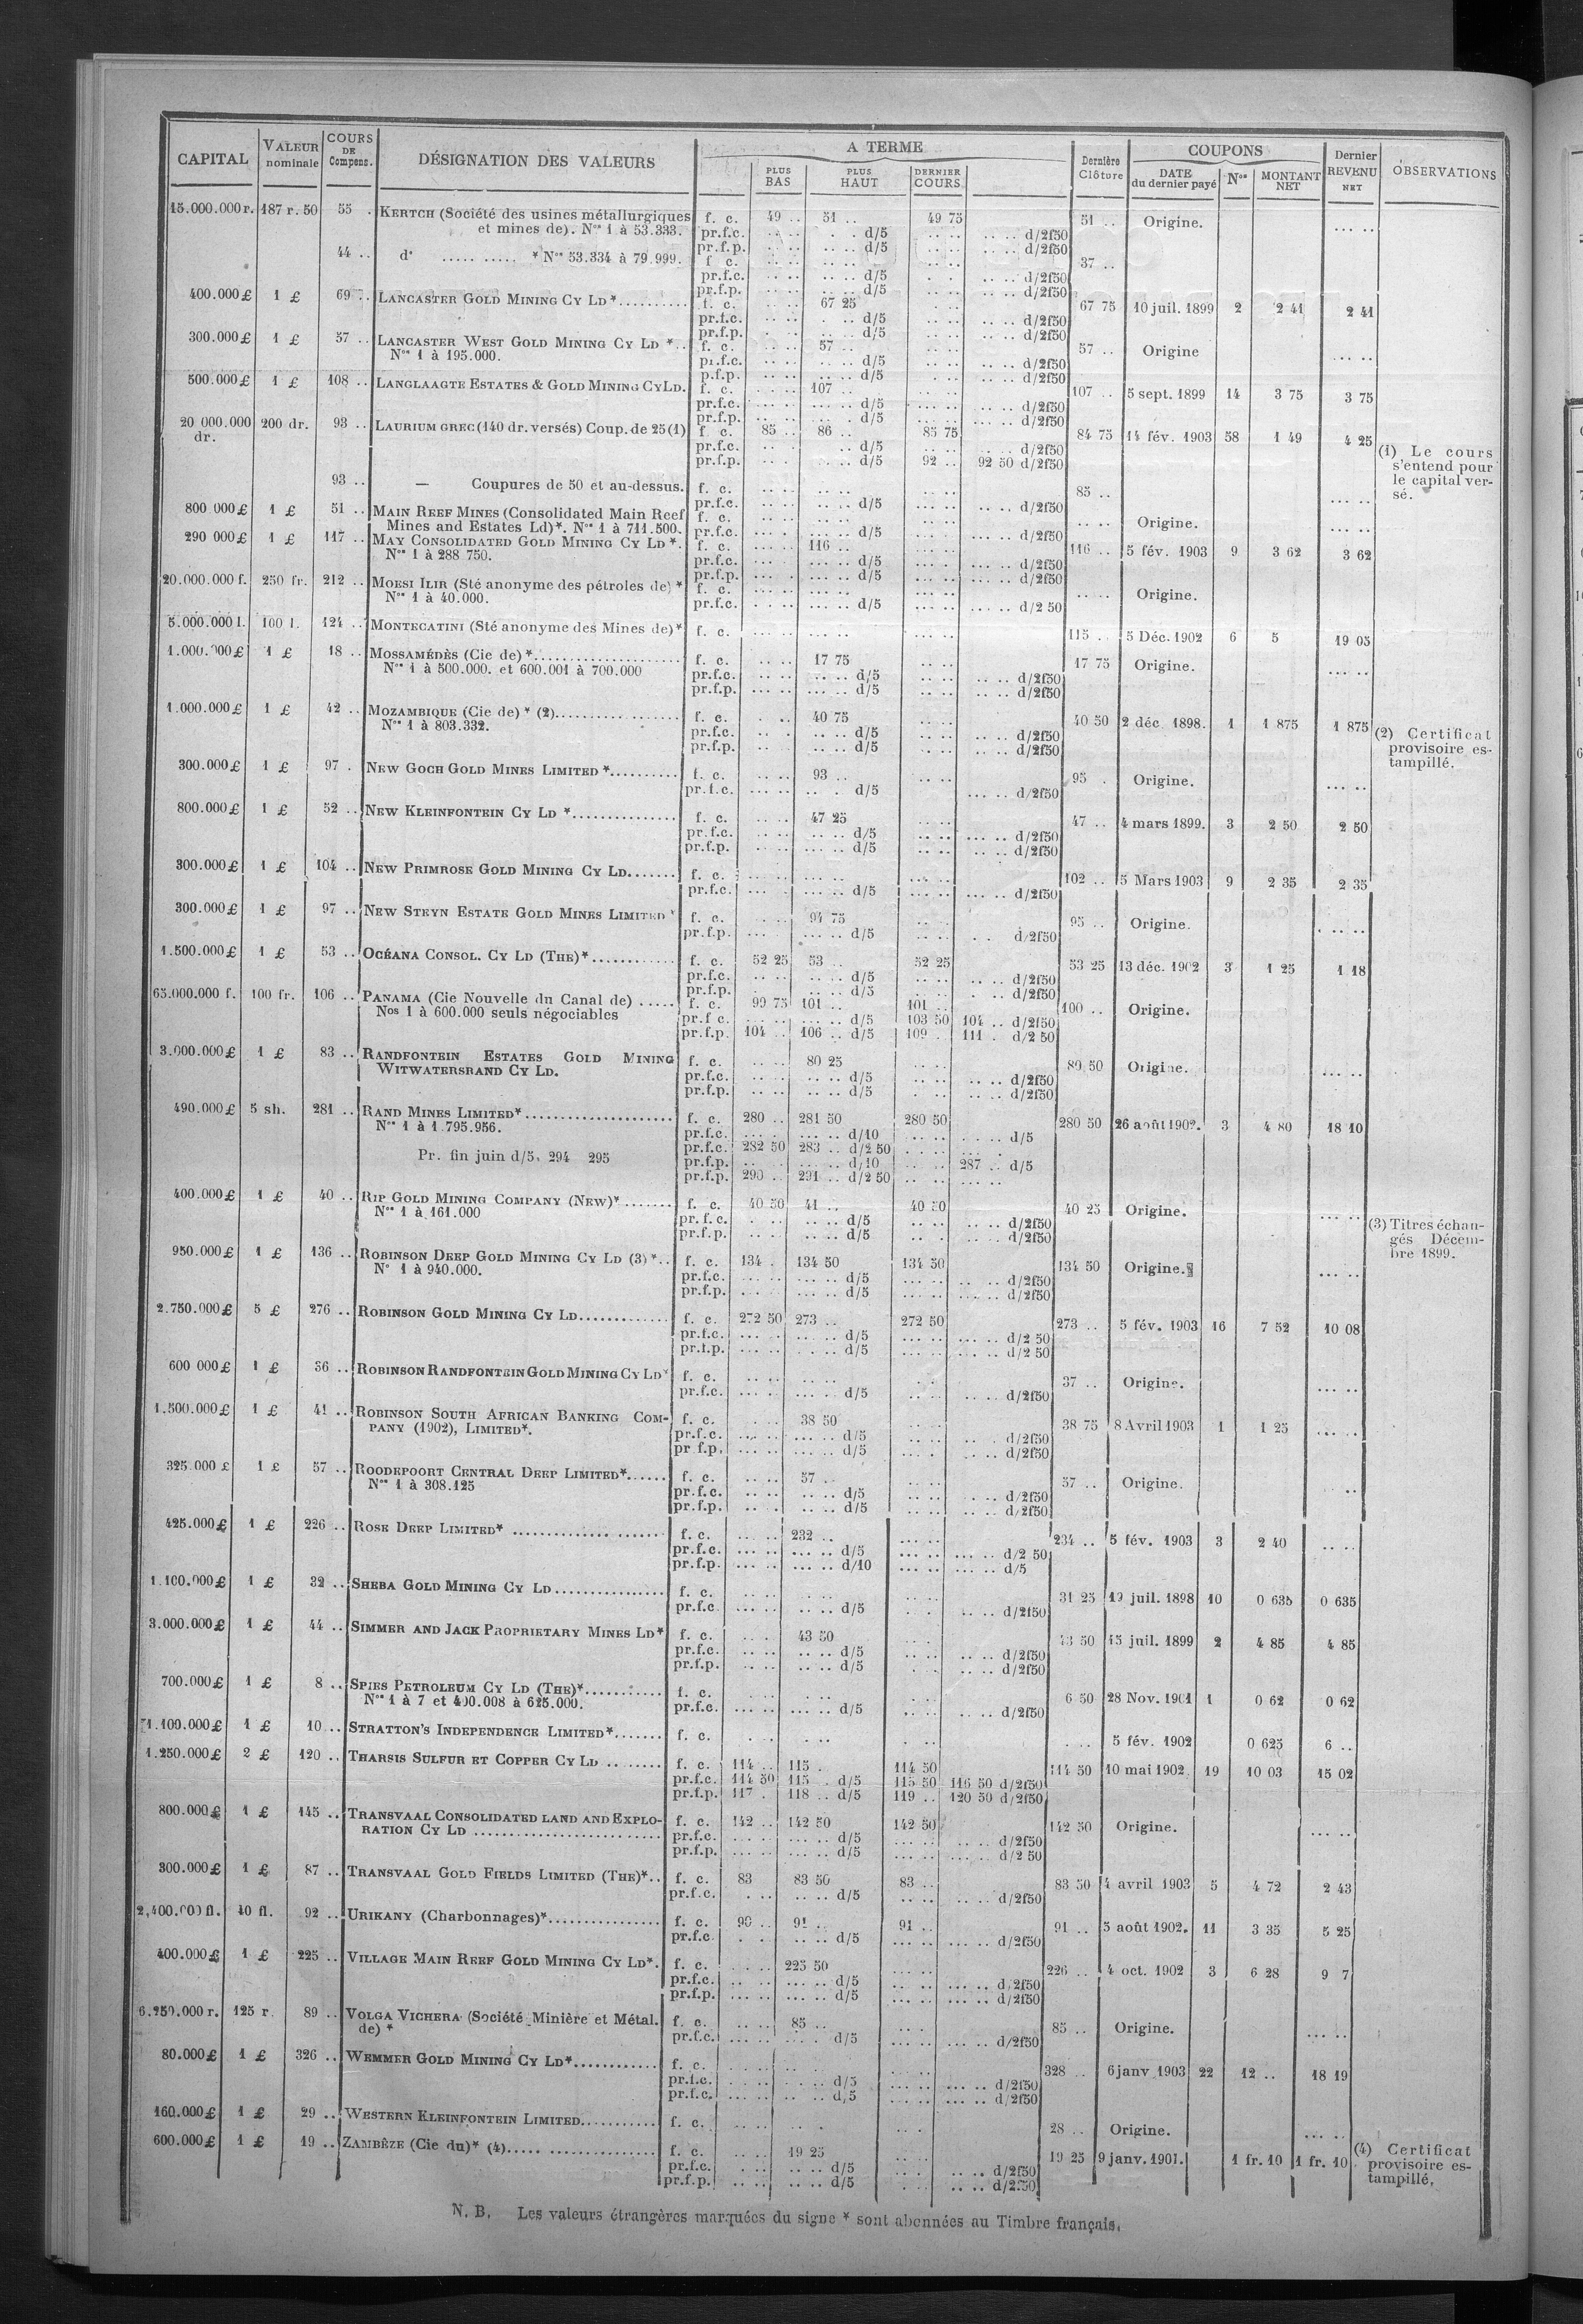 CAPITAL | VALEUR nominale | COURS DE Compens. | DÉSIGNATION DES VALEURS | A TERME | PLUS BAS | PLUS HAUT | DERNIER COURS | Dernière Clôture | COUPONS | DATE du dernier payé | Nos | MONTANT NET | Dernier REVENU NET | OBSERVATIONS
15.000.000 r. 187 r. 50 55 . KERTCH (Société des usines métallurgiques f. c. 49 .. 51 .. 49 75 51 .. Origine. ... ..
et mines de). Nos 1 à 53.333. pr.f.c. .. .. . . d/5 .. .. .. .. d/2f50
pr.f.p. .. .. .. .. d/5 .. .. .. .. d/2f50
44 .. do ..... ..... * Nos 53.334 à 79.999. f c. .. .. .. .. .. .. 37 ..
pr.f.c. .. .. .. .. d/5 .. .. .. .. d/2f50
pr.f.p. .. .. .. .. d/5 .. .. .. .. d/2f50
400.000 £ 1 £ 69 .. LANCASTER GOLD MINING CY LD *.......... f. c. 67 25 67 75 10 juil. 1899 2 2 41 2 41
pr.f.c. .. .. . .. d/5 .. .. .. .. d/2f50
pr.f.p. . .. .. .. d/5 .. .. .. .. d/2f50
300.000 £ 1 £ 57 .. LANCASTER WEST GOLD MINING CY LD *.. f. c. 57 .. 57 .. Origine ... ..
Nos 1 à 195.000. pr.f.c. .. .. .. .. d/5 .. .. .. .. d/2f50
p.f.p. .. .. .. .. d/5 . .. .. .. d/2f50
500.000 £ 1 £ 108 .. LANGLAAGTE ESTATES & GOLD MINING CY LD. f. c. 107 .. 107 .. 5 sept. 1899 14 3 75 3 75
pr.f.c. ... .. ... .. d/5 ... .. .. .. d/2f50
pr.f.p. .. .. .. . d/5 .. .. ... .. d/2f50
20 000.000 dr. 200 dr. 93 .. LAURIUM GREC (140 dr. versés) Coup. de 25 (1) f. c. 85 .. 86 .. 85 75 84 75 14 fév. 1903 58 1 49 4 25
pr.f.c. .. . .. .. d/5 .. .. .. d/2f50
pr.f.p. .. . . .. d/5 92 .. 92 50 d/2f50
(1) Le cours
s'entend pour
le capital ver-
sé.
93 .. — Coupures de 50 et au-dessus. f. c. .. .. .. .. .. .. 85 .. ... ..
pr.f.c. .. .. .. .. d/5 .. .. .. .. d/2f50
800 000 £ 1 £ 51 .. MAIN REEF MINES (Consolidated Main Reef f. c. .. .. .. .. .. .. .. .. Origine. ... ..
Mines and Estates Ld)*. Nos 1 à 711.500. pr.f.c. ... .. ... .. d/5 .. .. ... .. d/2f50
290 000 £ 1 £ 117 .. MAY CONSOLIDATED GOLD MINING CY LD *. f. c. 116 .. 116 .. 5 fév. 1903 9 3 62 3 62
Nos 1 à 288 750. pr.f.c. ... .. ... .. d/5 ... .. ... .. d/2f50
pr.f.p. ... . ... .. d/5 ... .. ... .. d/2f50
20.000.000 f. 250 fr. 212 .. MOESI ILIR (Sté anonyme des pétroles de) * f. c. ... .. ... .. ... .. .. .. Origine.
Nos 1 à 40.000. pr.f.c. . .. ... .. d/5 ... .. ... .. d/2 50
5.000.000 l. 100 l. 124 .. MONTECATINI (Sté anonyme des Mines de)* f. c. ... .. ... .. ... .. 115 .. 5 Déc. 1902 6 5 19 05
1.000.000 £ 1 £ 18 .. MOSSAMÉDÈS (Cie de) *..................... f. c. .. .. 17 75 .. .. 17 75 Origine. ... ..
Nos 1 à 500.000. et 600.001 à 700.000 pr.f.c. .. .. .. .. d/5 .. .. .. .. d/2f50
pr.f.p. ... .. ... .. d/5 .. .. .. .. d/2f50
1.000.000 £ 1 £ 42 .. MOZAMBIQUE (Cie de) * (2).................. f. c. . .. 40 75 .. .. 40 50 2 déc. 1898. 1 1 875 1 875
Nos 1 à 803.332. pr.f.c. .. . .. .. d/5 .. .. .. .. d/2f50
pr.f.p. .. .. .. d/5 .. .. .. .. d/2f50
(2) Certificat
provisoire es-
tampillé.
300.000 £ 1 £ 97 . NEW GOCH GOLD MINES LIMITED *.......... f. c. .. .. 93 .. .. .. 95 . Origine. ... ..
pr.f.c. ... .. .. . d/5 ... .. d/2f50
800.000 £ 1 £ 52 .. NEW KLEINFONTEIN CY LD *............... f. c. .. .. 47 25 .. .. 47 .. 4 mars 1899. 3 2 50 2 50
pr.f.c. .. .. .. .. d/5 .. .. ... .. d/2f50
pr.f.p. .. .. .. .. d/5 .. .. .. .. d/2f50
300.000 £ 1 £ 104 .. NEW PRIMROSE GOLD MINING CY LD....... f. c. ... .. ... .. ... .. 102 .. 5 Mars 1903 9 2 35 2 35
pr.f.c. ... . ... .. d/5 ... .. ... .. d/2f50
300.000 £ 1 £ 97 .. NEW STEYN ESTATE GOLD MINES LIMITED * f. c. . .. 94 75 .. . 95 .. Origine. . .. ..
pr.f.p. ... . ... .. d/5 .. .. . . d/2f50
1.500.000 £ 1 £ 53 .. OCÉANA CONSOL. CY LD (THE)*............ f. c. 52 25 53 .. 52 25 53 25 13 déc. 1902 3 1 25 1 18
pr.f.c. .. .. .. .. d/5 .. .. .. .. d/2f50
pr.f.p. . .. .. d/5 . .. . .. d/2f50
65.000.000 f. 100 fr. 106 .. PANAMA (Cie Nouvelle du Canal de) ..... f. c. 99 75 101 .. 101 .. 100 .. Origine.
Nos 1 à 600.000 seuls négociables pr.f c. ... .. ... .. d/5 103 50 104 .. d/2f50
pr.f.p. 104 .. 106 .. d/5 109 . 111 . d/2 50
3.000.000 £ 1 £ 83 .. RANDFONTEIN ESTATES GOLD MINING f. c. .. .. 80 25 .. .. 80 50 Origine. ... ..
WITWATERSRAND CY LD. pr.f.c. .. .. .. .. d/5 .. .. .. .. d/2f50
pr.f.p. .. .. .. .. d/5 . .. .. .. d/2f50
490.000 £ 5 sh. 281 .. RAND MINES LIMITED*...................... f. c. 280 .. 281 50 280 50 280 50 26 août 1902. 3 4 80 18 10
Nos 1 à 1.795.956. pr.f.c. ... . ... .. d/10 .. .. . .. d/5
pr.f.c. 282 50 283 .. d/2 50 . . .. ... .
Pr. fin juin d/5, 294 295 pr.f.p. .. . ... .. d/10 .. .. 287 .. d/5
pr.f.p. 290 .. 291 .. d/2 50 .. .. ... ..
400.000 £ 1 £ 40 .. RIP GOLD MINING COMPANY (NEW)*....... f. c. 40 50 41 .. 40 50 40 25 Origine. ... ..
Nos 1 à 161.000 pr. f. c. . .. .. .. d/5 .. .. .. .. d/2f50
pr.f.p. .. .. .. .. d/5 .. . .. .. d/2f50
(3) Titres échan-
gés Décem-
bre 1899.
950.000 £ 1 £ 136 .. ROBINSON DEEP GOLD MINING CY LD (3)*.. f. c. 134 . 134 50 134 50 134 50 Origine. ... ..
No 1 à 940.000. pr.f.c. ... .. ... .. d/5 ... .. .. .. d/2f50
pr.f.p. ... .. ... .. d/5 ... .. ... .. d/2f50
2.750.000 £ 5 £ 276 .. ROBINSON GOLD MINING CY LD............. f. c. 272 50 273 .. 272 50 273 .. 5 fév. 1903 16 7 52 10 08
pr.f.c. ... . ... .. d/5 ... .. ... .. d/2 50
pr.f.p. ... .. . .. d/5 ... .. ... .. d/2 50
600 000 £ 1 £ 36 .. ROBINSON RANDFONTEIN GOLD MINING CY LD* f. c. .. .. .. .. .. 37 .. Origine. ... ..
pr.f.c. ... .. ... .. d/5 .. .. .. .. d/2f50
1.500.000 £ 1 £ 41 .. ROBINSON SOUTH AFRICAN BANKING COM- f. c. . .. 38 50 .. .. 38 75 8 Avril 1903 1 1 25 ... ..
PANY (1902), LIMITED*. pr.f.c. ... .. ... .. d/5 .. .. .. . d/2f50
pr f.p. ... .. ... .. d/5 ... . .. .. d/2f50
325.000 £ 1 £ 57 .. ROODEPOORT CENTRAL DEEP LIMITED*...... f. c. .. .. 57 .. .. .. 57 .. Origine. ..
Nos 1 à 308.125 pr.f.c. .. .. .. .. d/5 .. .. .. .. d/2f50
pr.f.p. .. . .. .. d/5 .. .. .. .. d/2f50
425.000 £ 1 £ 226 .. ROSE DEEP LIMITED* ..................... f. c. ... .. 232 .. ... .. 234 .. 5 fév. 1903 3 2 40 .. ..
pr.f.c. ... .. ... .. d/5 ... .. ... .. d/2 50
pr.f.p. ... .. ... .. d/10 ... .. ... .. d/5
1.100.000 £ 1 £ 32 .. SHEBA GOLD MINING CY LD................ f. c. .. .. . .. .. .. 31 25 19 juil. 1898 10 0 635 0 635
pr.f.c ... .. .. .. d/5 . . .. .. d/2f50
3.000.000 £ 1 £ 44 .. SIMMER AND JACK PROPRIETARY MINES LD* f. c. .. . 43 50 .. . 43 50 15 juil. 1899 2 4 85 4 85
pr.f.c. .. .. .. .. d/5 .. .. .. .. d/2f50
pr.f.p. .. .. .. .. d/5 . .. .. .. d/2f50
700.000 £ 1 £ 8 .. SPIES PETROLEUM CY LD (THE)*........... f. c. .. . . .. . .. 6 50 28 Nov. 1901 1 0 62 0 62
Nos 1 à 7 et 400.008 à 625.000. pr.f.c. ... .. ... .. d/5 .. .. .. .. d/2f50
1.100.000 £ 1 £ 10 .. STRATTON'S INDEPENDENCE LIMITED*....... f. c. . . . .. . .. . .. 5 fév. 1902 0 625 6 ..
1.250.000 £ 2 £ 120 .. THARSIS SULFUR ET COPPER CY LD ........ f. c. 114 .. 115 . 114 50 114 50 10 mai 1902 19 10 03 15 02
pr.f.c. 114 50 115 . d/5 115 50 116 50 d/2f50
pr.f.p. 117 . 118 .. d/5 119 .. 120 50 d/2f50
800.000 £ 1 £ 145 .. TRANSVAAL CONSOLIDATED LAND AND EXPLO- f. c. 142 .. 142 50 142 50 142 50 Origine. ... ..
RATION CY LD ........................... pr.f.c. ... .. ... .. d/5 ... .. .. .. d/2f50
pr.f.p. ... .. ... .. d/5 ... .. ... .. d/2 50
300.000 £ 1 £ 87 .. TRANSVAAL GOLD FIELDS LIMITED (THE)*.. f. c. 83 83 50 83 .. 83 50 4 avril 1903 5 4 72 2 43
pr.f.c. . .. .. .. d/5 .. .. .. .. d/2f50
2,400.000 fl. 40 fl. 92 .. URIKANY (Charbonnages)*................ f. c. 90 .. 91 .. 91 .. 91 .. 5 août 1902. 11 3 35 5 25
pr.f.c . . .. .. d/5 ... .. ... .. d/2f50
400.000 £ 1 £ 225 .. VILLAGE MAIN REEF GOLD MINING CY LD*. f. c. . .. 225 50 ... .. 226 .. 4 oct. 1902 3 6 28 9 7
pr.f.c. .. .. ... .. d/5 .. .. ... .. d/2f50
pr.f.p. ... .. ... .. d/5 ... .. ... .. d/2f50
6.250.000 r. 125 r. 89 .. VOLGA VICHERA (Société Minière et Métal. f. c. .. .. 85 .. .. . 85 .. Origine. ... ..
de) * pr.f.c. ... .. .. . d/5 ... .. ... .. d/2f50
80.000 £ 1 £ 326 .. WEMMER GOLD MINING CY LD*............ f. c. . .. .. .. . .. 328 .. 6 janv 1903 22 12 .. 18 19
pr.f.c. . .. . .. d/5 ... .. ... .. d/2f50
pr.f.c. ... .. .. .. d/5 ... .. ... .. d/2f50
160.000 £ 1 £ 29 .. WESTERN KLEINFONTEIN LIMITED........... f. c. .. .. . . .. . 28 .. Origine. ... ..
600.000 £ 1 £ 19 .. ZAMBÈZE (Cie du)* (4)..... ............... f. c. .. .. 19 25 .. .. 19 25 9 janv. 1901. 1 fr. 10 1 fr. 10
pr.f.c. . .. .. .. d/5 .. . .. .. d/2f50
pr.f.p. .. .. .. .. d/5 . .. .. .. d/2f50
(4) Certificat
provisoire es-
tampillé,
N. B. Les valeurs étrangères marquées du signe * sont abonnées au Timbre français.